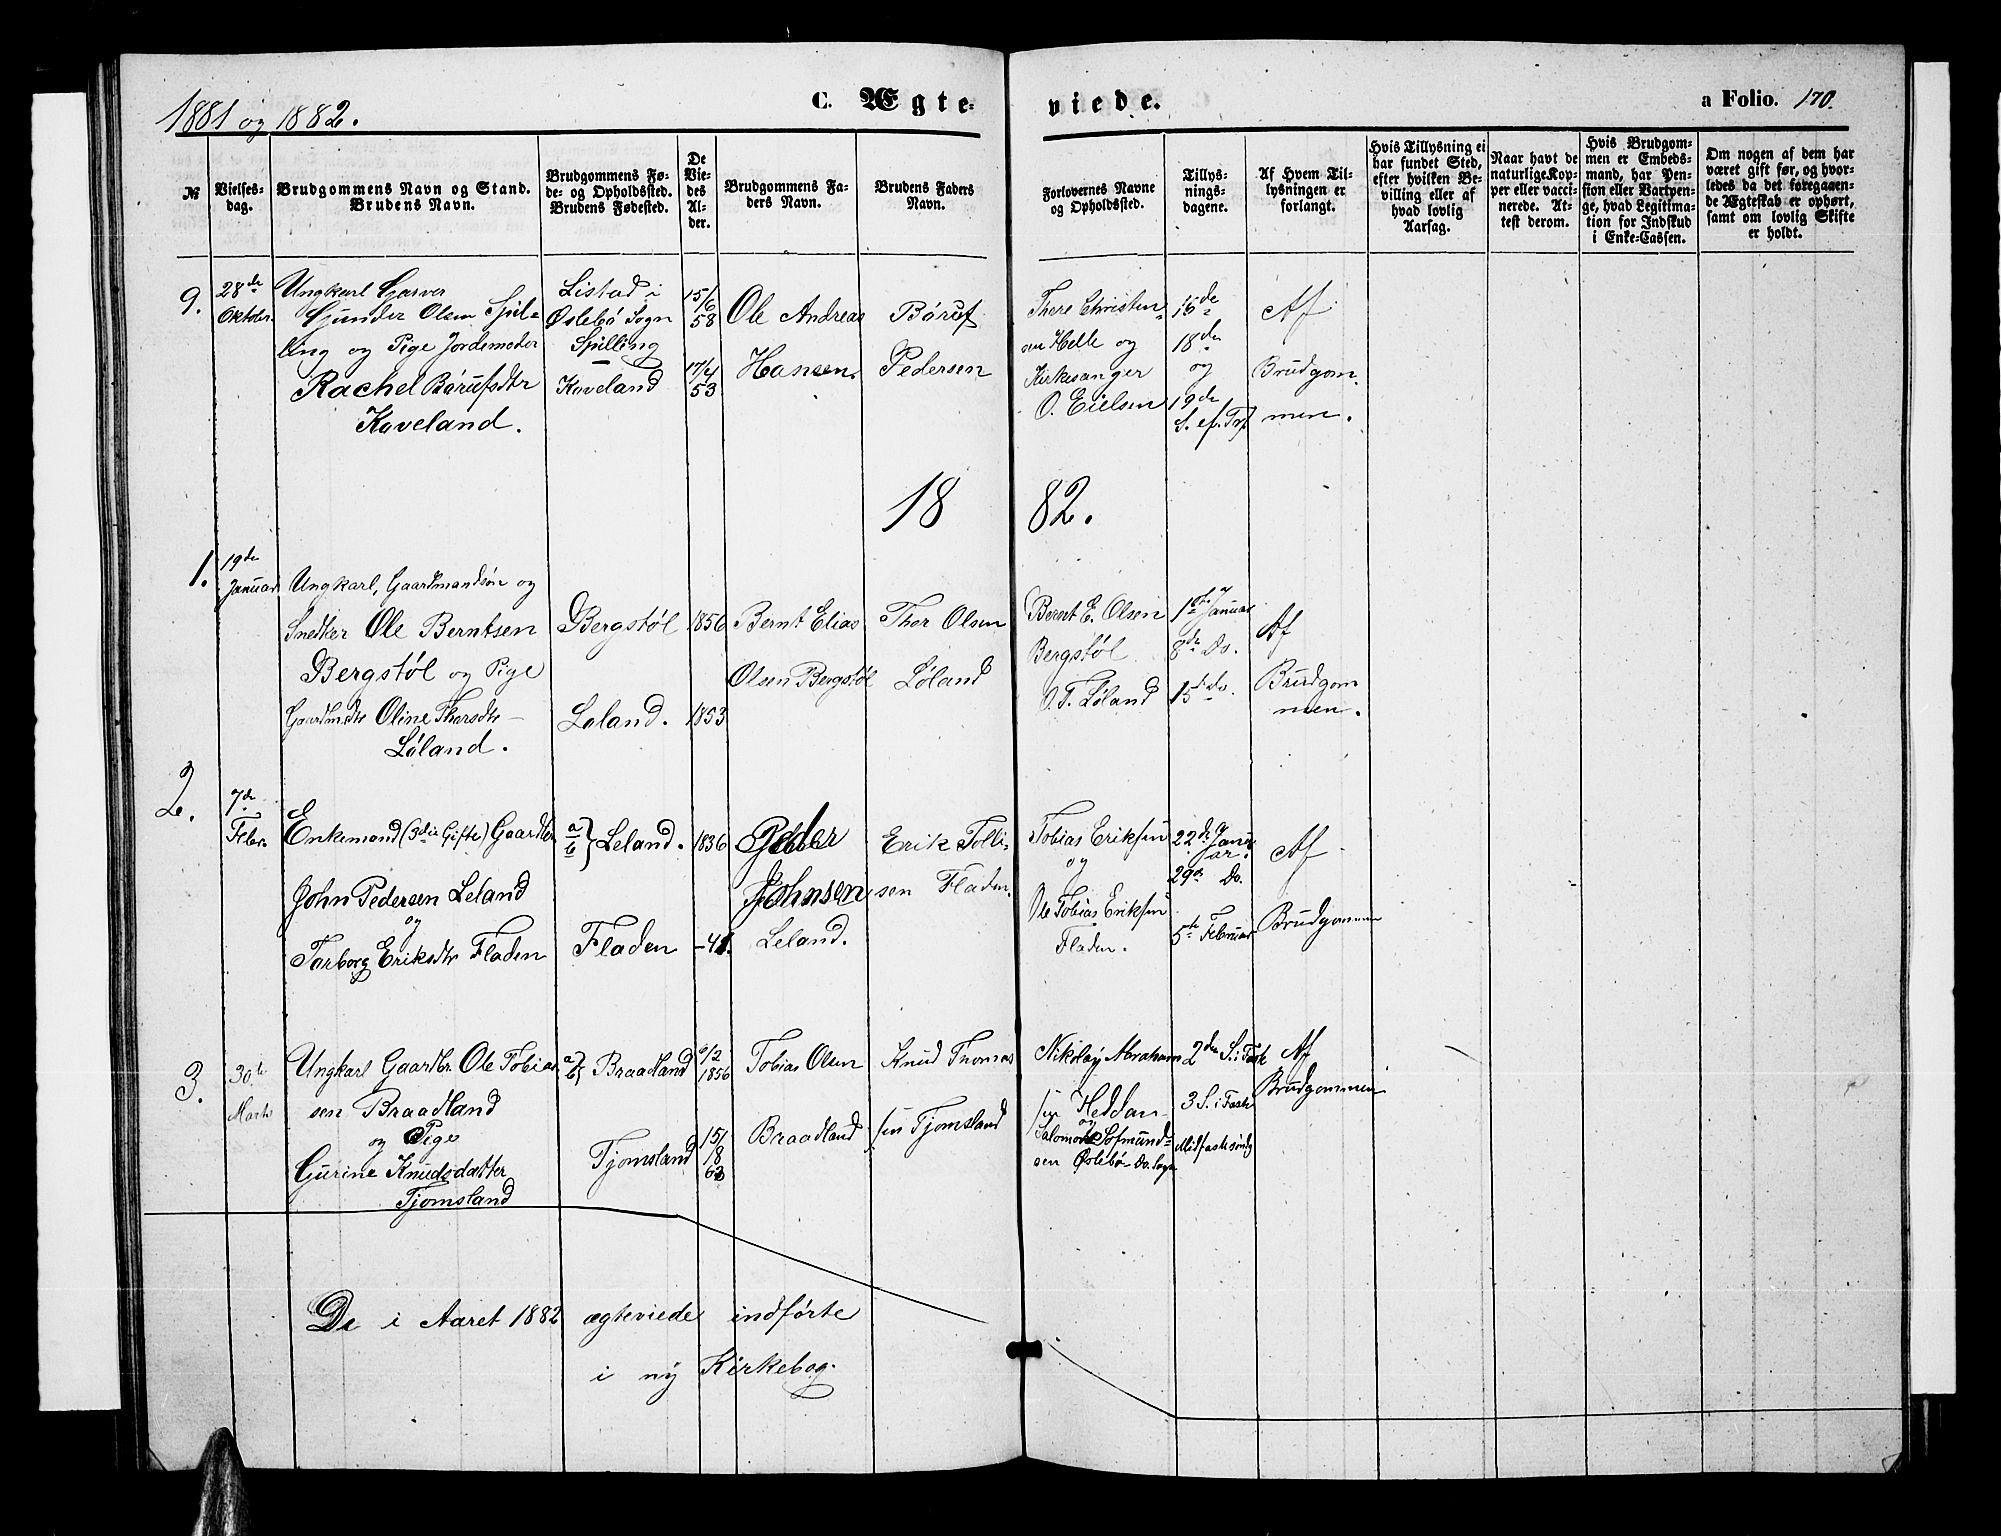 1881 og 1882.
C. Ægte-
viede.
a Folio. 170.
№
Vielses-
dag.
Brudgommens Navn og Stand.
Brudens Navn.
Brudgommens Fø-
de- og Opholdssted.
Brudens Fødested.
De
Vie-
des
Al-
der.
Brudgommens Fa-
ders Navn.
Brudens Faders
Navn.
Forlovernes Navne
og Opholdssted.
Tillys-
nings-
dagene.
Af Hvem Til-
lysningen er
forlangt.
Hvis Tillysning ei
har fundet Sted,
efter hvilken Be-
villing eller af
hvad lovlig
Aarsag.
Naar havt de
naturlige Kop-
per eller vacci-
nerede. At-
test derom.
Hvis Brudgom-
men er Embeds-
mand, har Pen-
sion eller Vartpen-
ge, hvad Legitima-
tion for Indskud
i Enke-Cassen.
Om nogen af dem har
været gift før, og hvor-
ledes da det foregaaen-
de Ægteskab er ophørt,
samt om lovlig Skifte
er holdt.
9.
28de
Oktober
Ungkarl Garver
Gunder Olsen Spil-
ling og Pige Jordemoder
Rachel Børufsdtr
Kaveland.
Listad i
Øslebø Sogn
Spilling
Kaveland
15/6
58
17/4
53
Ole Andreas
Hansen.
Børuf
Pedersen
There Christen-
sen Helle og
Kirkesanger
O. Eielsen
16de
18de
og
19de
S. ef. Trf
Af
Brudgom-
men.
18 82.
1.
19de
Januar
Ungkarl, Gaardmandsøn og
Snedker Ole Berntsen
Bergstøl og Pige
Gaardmdtr Oline Thorsdtr
Løland.
Bergstøl
Løland.
1856
1853
Bernt Elias
Olsen Bergstøl
Thor Olsen
Løland
Berent E. Olsen
Bergstøl
O. T. Løland
1ste Januar
8de Do.
15de do.
Af
Brudgom
men.
2.
7de
Febr.
Enkemand (3die Gifte) Gaardbr
John Pedersen Leland
og
Tarborg Eriksdtr Fladen
a
b } Leland.
Fladen
1836
-41.
Peder
Johnsen
Leland.
Erik Tolli-
sen Fladen.
Tobias Eriksen
og
Ole Tobias Eriksen
Fladen.
22de Janu-
ar.
29de Do.
5te Februar
Af
Brudgommen
3.
30te
Marts
Ungkarl Gaardbr. Ole Tobias-
sen Braadland
og Pige
Gurine Knudsdatter
Tjomsland
a
b } Braadland
Tjomsland
6/2
1856
15/
/8
63
Tobias Olsen
Braadland
Knud Thomas
sen Tjomsland
Nikolay Abraham
sen Heddan
og
Salomon Sofmund-
sen Øslebø Do. Sogn
2den S. i Faste
3 S. i Faste
Midfastesøndg
Af
Brudgommen
De i Aaret 1882 ægteviede indførte
i ny Kirkebog.